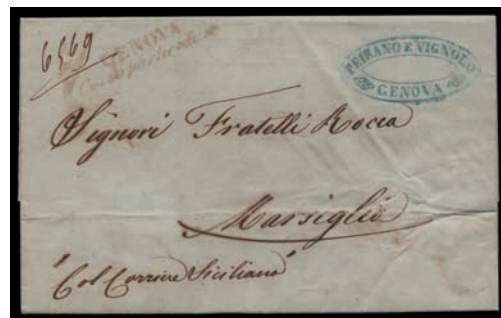 6569
GENOVA
PEIRANO E VIGNOLO
GENOVA
Signori Fratelli Rocca
Marsiglia
"Col Corriere Siciliano"